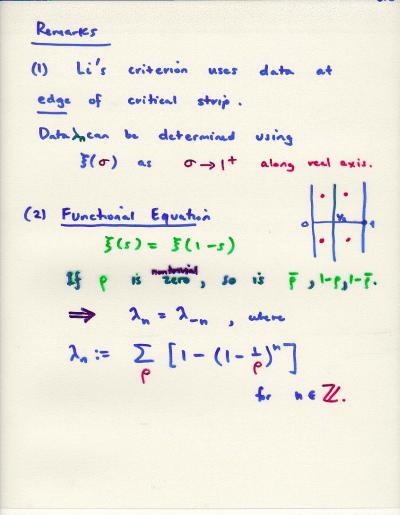 Remarks
(1) Li's criterion uses data at
edge of critical strip.
Data λn can be determined using
ξ(σ) as σ → 1⁺ along real axis.
0 ½ 1
(2) Functional Equation
ξ(s) = ξ(1-s)
If ρ is nontrivial zero, so is ρ̄, 1-ρ, 1-ρ̄.
⇒ λₙ = λ₋ₙ, where
λₙ := Σ_ρ [1 - (1 - 1/ρ)ⁿ]
for n ∈ ℤ.